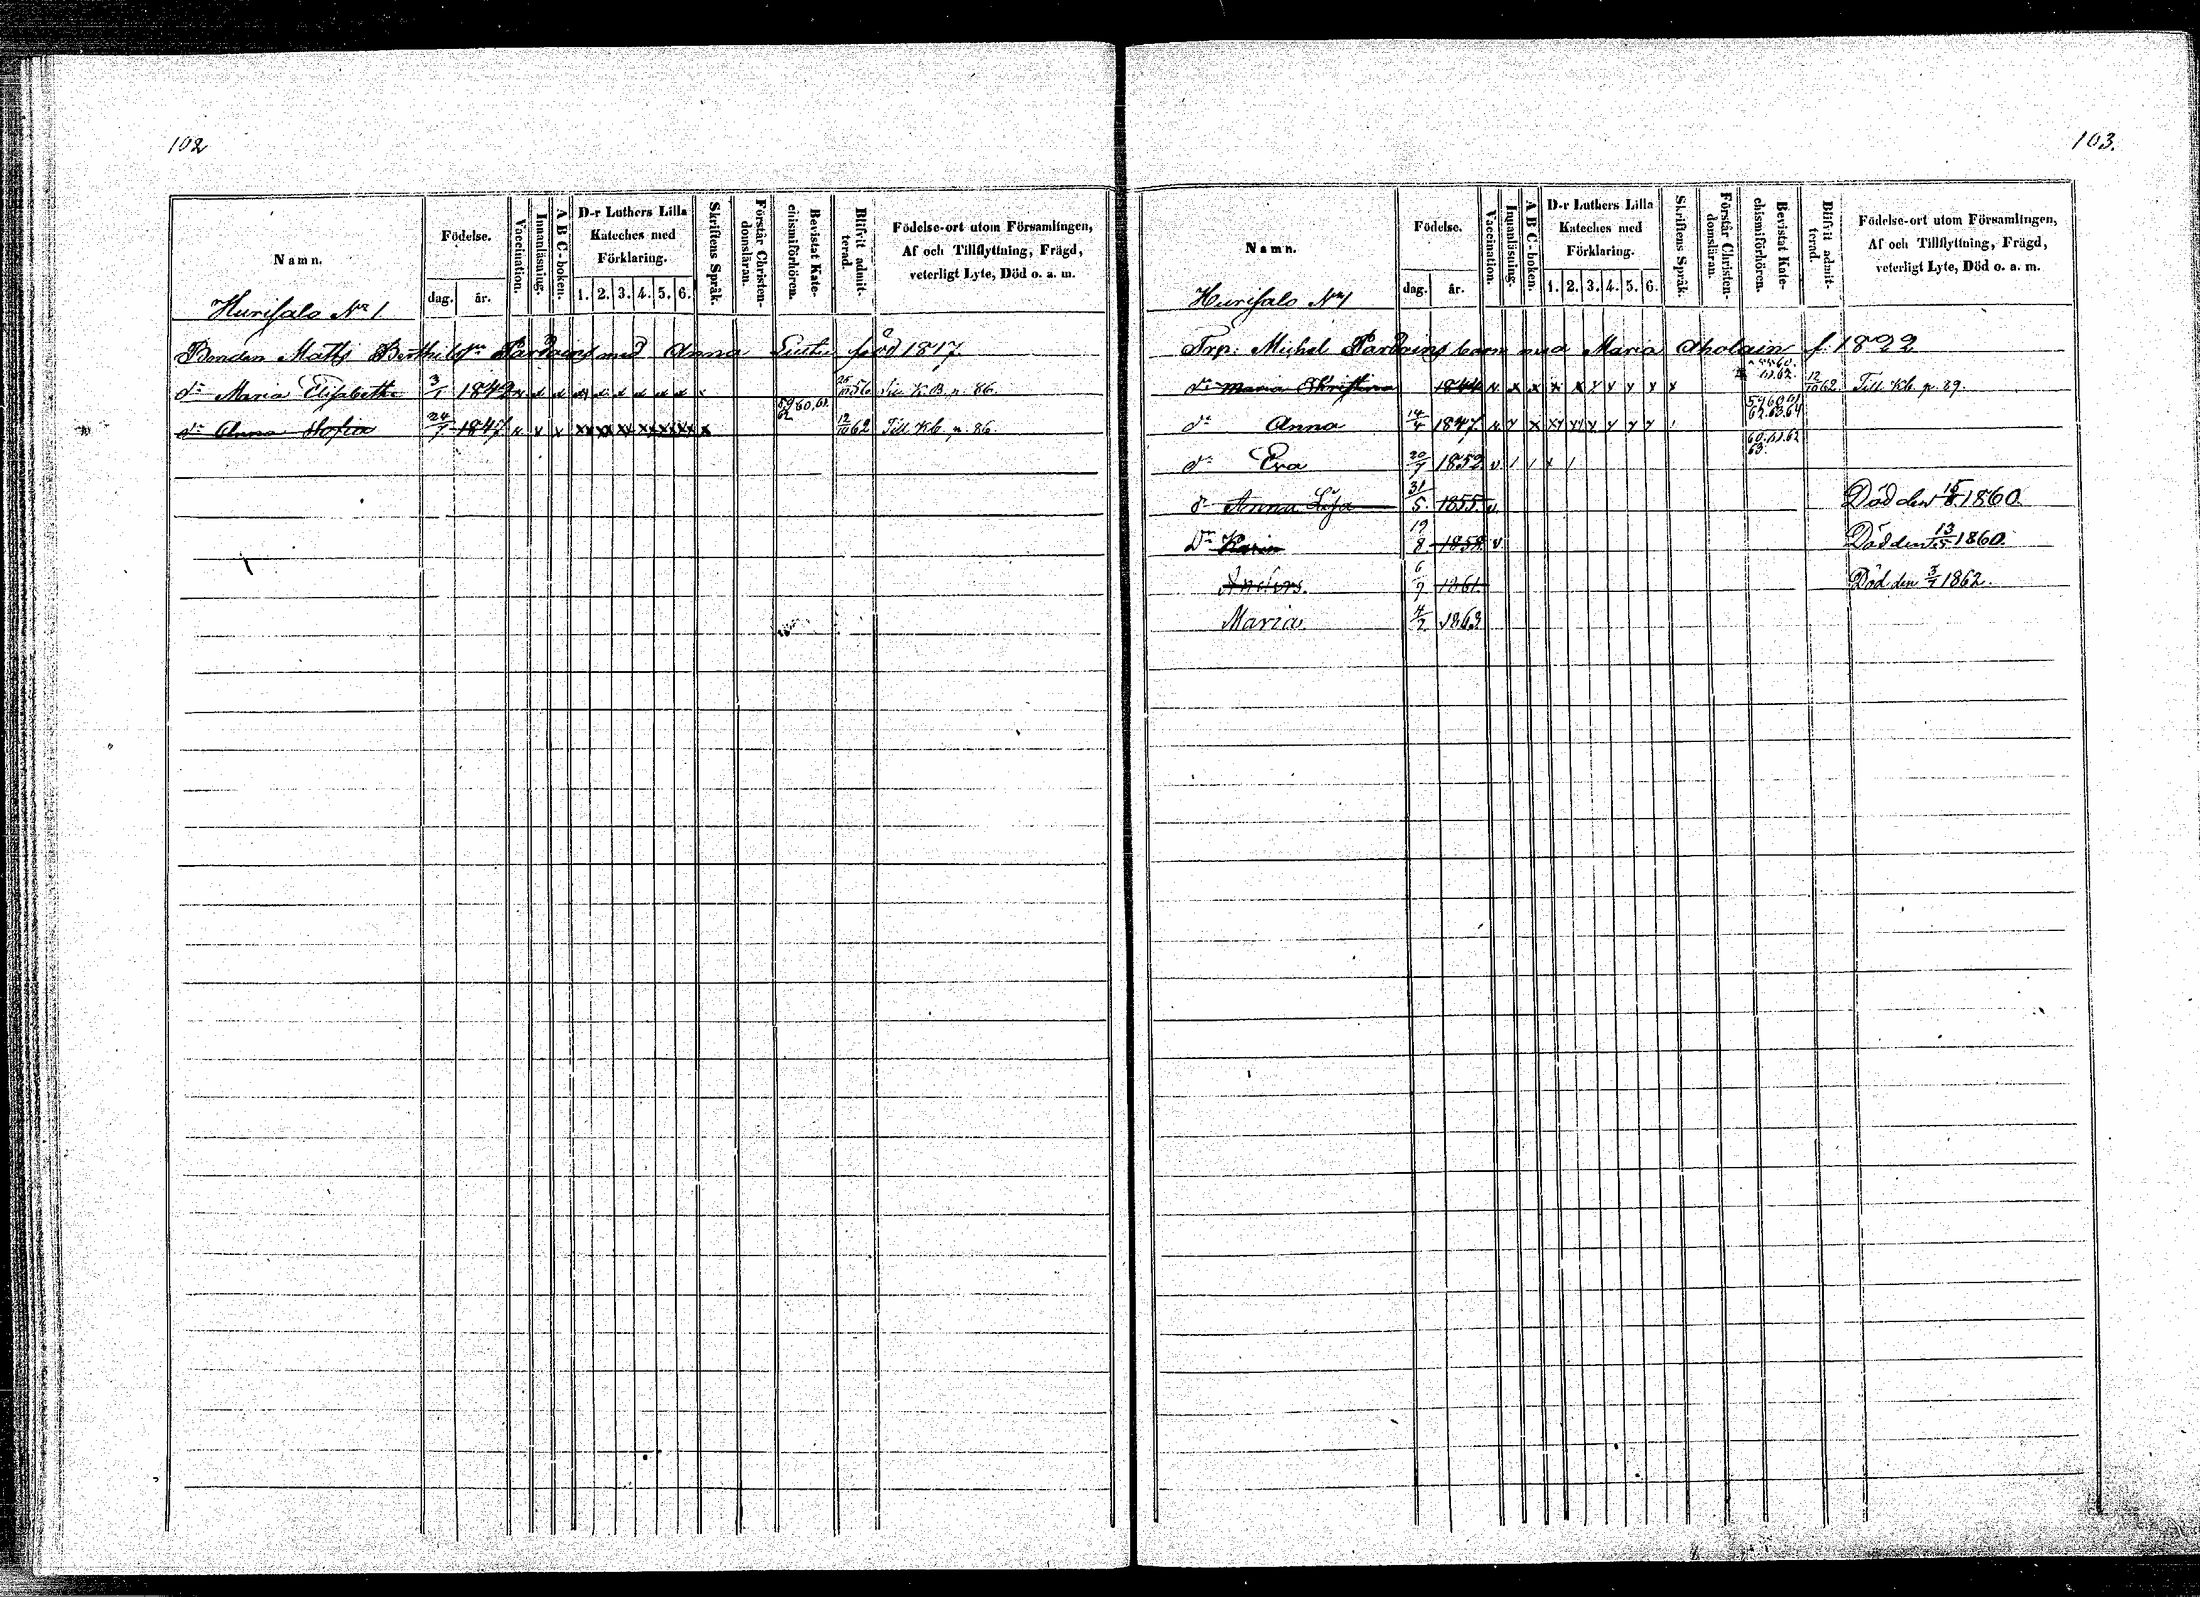 102
Namn.
Födelse.
dag. år.
Vaccination.
Innanläsning.
A B C-boken.
D-r Luthers Lilla Kateches med Förklaring.
1. 2. 3. 4. 5. 6.
Skriftens Språk.
Förstår Christendomsläran.
Bevistat Katechismiförhören.
Blifvit admitterad.
Födelse-ort utom Församlingen, Af och Tillflyttning, Frägd, veterligt Lyte, Död o. a. m.
Hurisalo No 1.
Bonden Matts Parvains med Anna född 1817.
do Maria Elisabeth 3/1 1842 56 K.B. p. 86.
do Anna Sofia 24/7 1847 59 60. 61. 62 12/10 62 Till Kb. p. 86.
103.
Namn.
Födelse.
dag. år.
Vaccination.
Innanläsning.
A B C-boken.
D-r Luthers Lilla Kateches med Förklaring.
1. 2. 3. 4. 5. 6.
Skriftens Språk.
Förstår Christendomsläran.
Bevistat Katechismiförhören.
Blifvit admitterad.
Födelse-ort utom Församlingen, Af och Tillflyttning, Frägd, veterligt Lyte, Död o. a. m.
Hurisalo No 1
Trp: Michel Parvains barn med Maria Aholain f. 1822
do Maria Christina 1844 61. 62. 12/10 62 Till Kb. p. 89.
do Anna 14/4 1847 59 60 61 62. 63. 64
do Eva 20/7 1852 60. 61. 62 63.
do Anna Lisa 31/5 1855
Död den 15/8 1860.
Do Karin 19/8 1858
Död den 13/5 1860.
Anders. 6/9 1861.
Död den 3/7 1862.
Maria. 4/2 1863